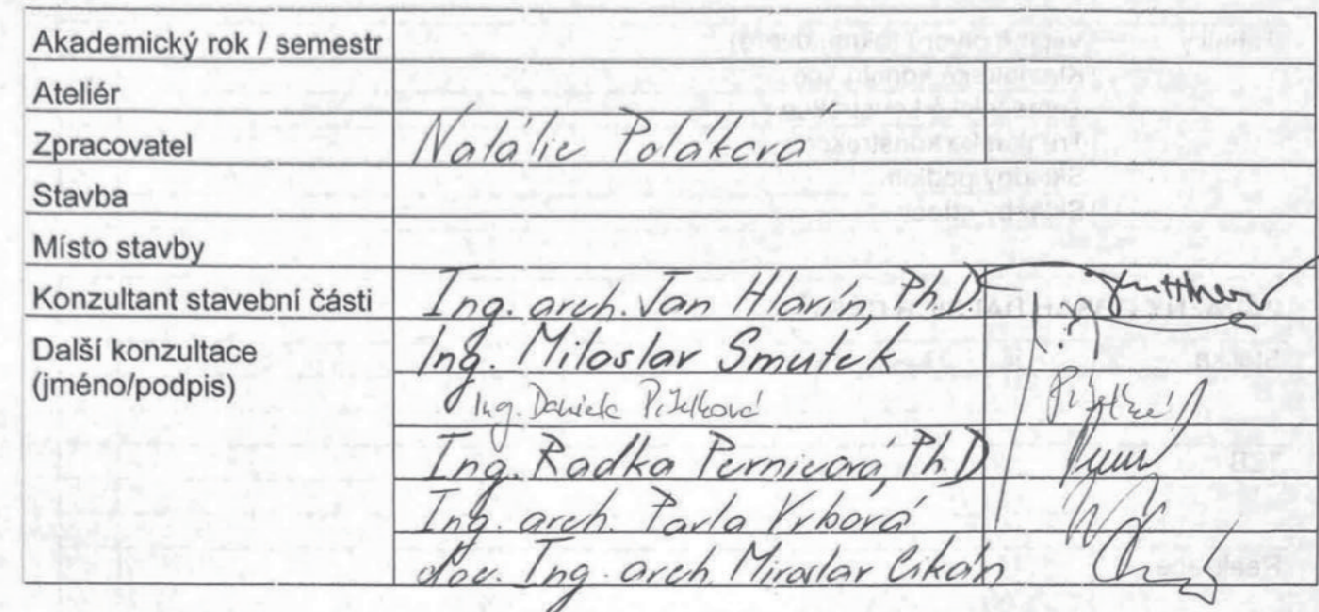 Akademický rok / semestr
Ateliér
Zpracovatel Natálie Poláková
Stavba
Místo stavby
Konzultant stavební části Ing. arch. Jan Hlavín, Ph.D
Další konzultace Ing. Miloslav Smutek
(jméno/podpis)
Ing. Daniela
Ing. Radka Pernicová, Ph.D
Ing. arch. Pavla Vrbová
doc. Ing. arch. Miroslav Cikán